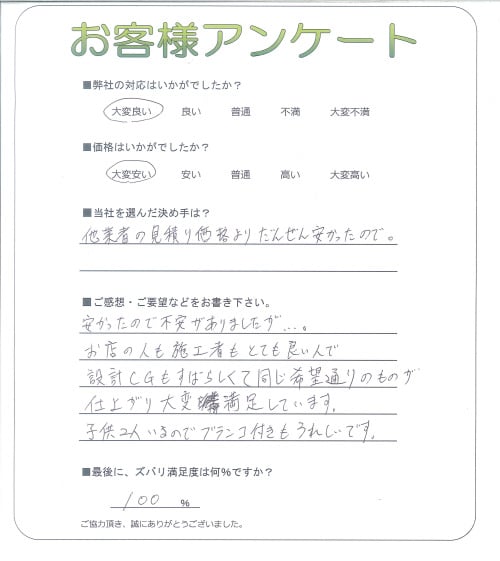 お客様アンケート
■弊社の対応はいかがでしたか？
大変良い 良い 普通 不満 大変不満
■価格はいかがでしたか？
大変安い 安い 普通 高い 大変高い
■当社を選んだ決め手は？
他業者の見積り価格よりだんぜん安かったので。
■ご感想・ご要望などをお書き下さい。
安かったので不安がありましたが…。
お店の人も施工者もとても良い人で
設計CGもすばらしくて同じ希望通りのものが
仕上がり大変満足しています。
子供2人いるのでブランコ付きもうれしいです。
■最後に、ズバリ満足度は何％ですか？
100 ％
ご協力頂き、誠にありがとうございました。